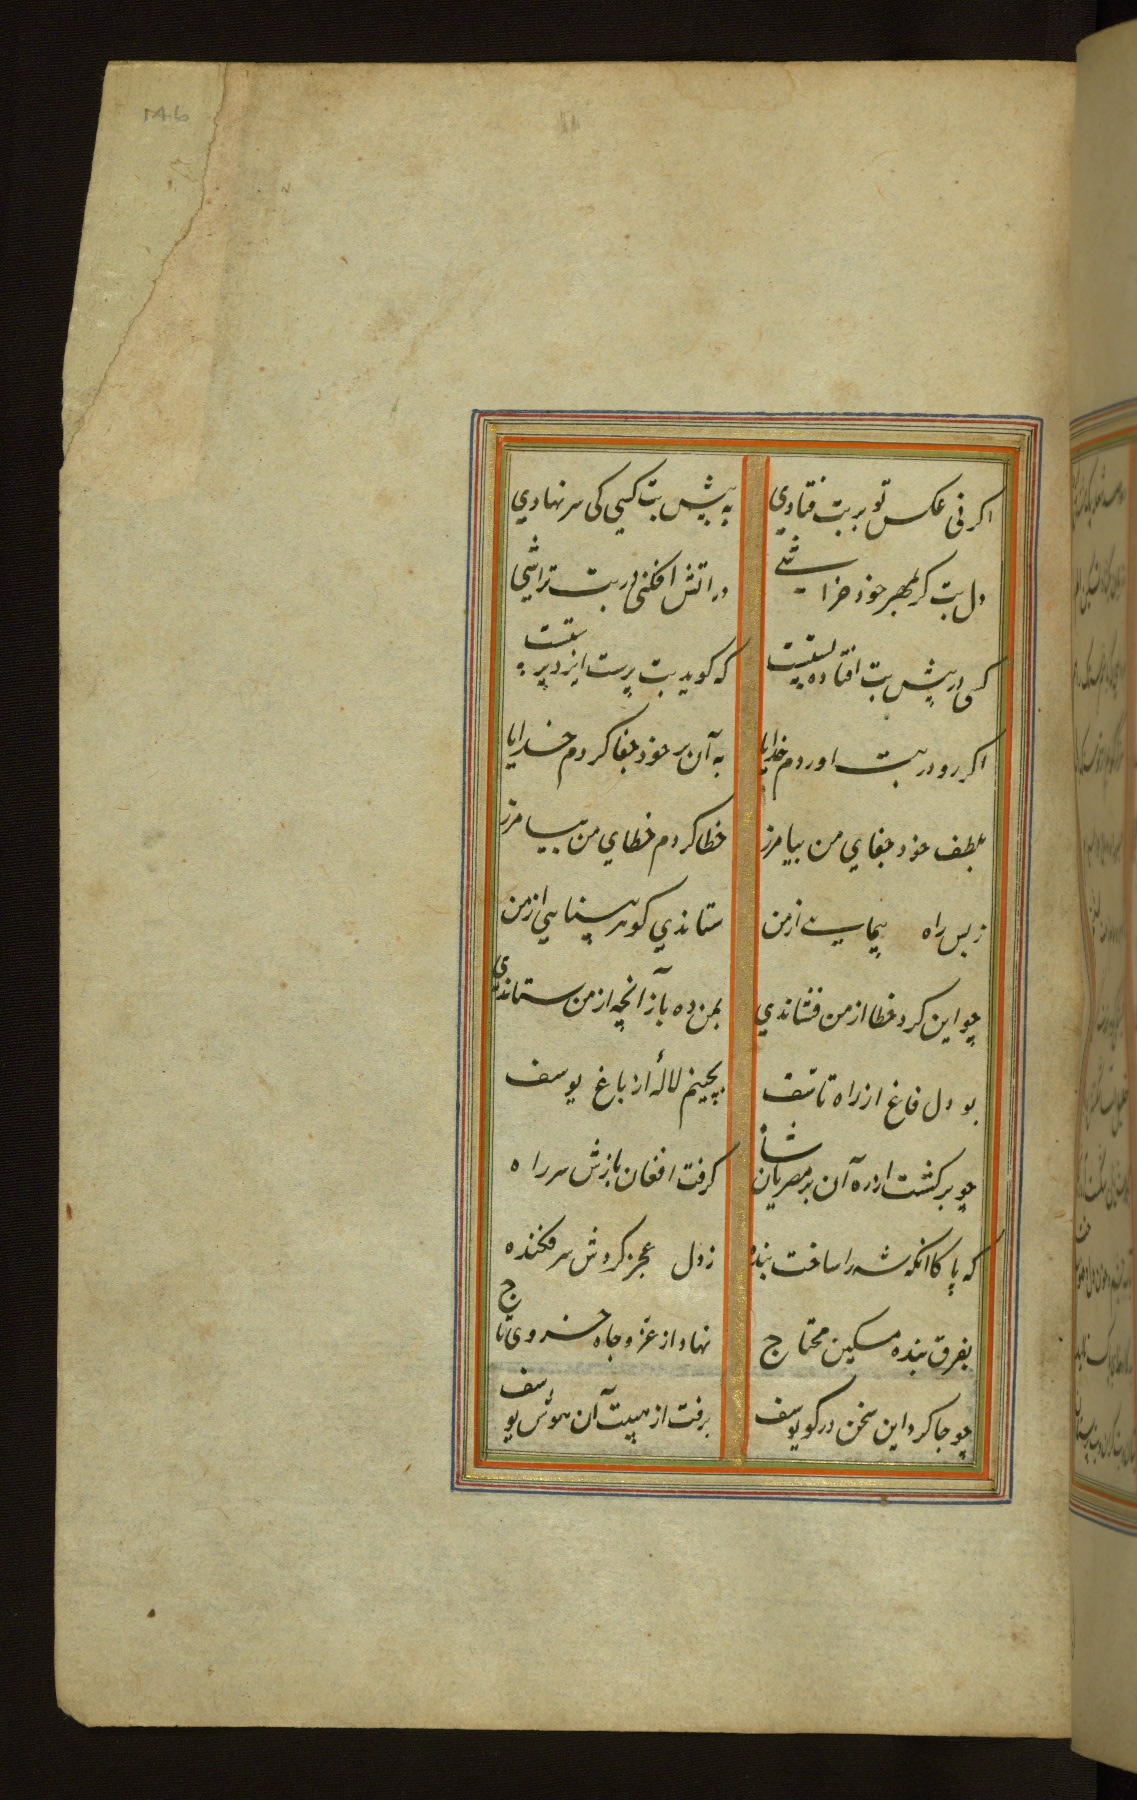 اکر نی عکس تو بر بت فتادی
به پیش بت کسی کی سر نهادی
دل بت کر بمهر خود خراشی
در اتش افکنی در بت تراشی
کسی در پیش بت افتاده پستست
که کوید بت پرست ایزد پرستست
اکر رو در بت اوردم خدایا
به آن بر خود جفا کردم خدایا
بلطف خود جفای من بیامرز
خطا کردم خطای من بیامرز
ز بس راه پیمایی از من
ستاندی کوهر بینایی از من
چو این کرد خطا از من فشاندی
بمن ده باز آنچه از من ستاندی
بود دل فاغ از راه تاسف
بچینم لاله از باغ یوسف
چو برکشت از ره آن بر مصریان شاه
کرفت افغان بازش سر راه
که پاکا انکه شه را ساخت بنده
ز دل عجز کردش سر فکنده
بفرق بنده مسکین محتاج
نهاد از عز و جاه خسروی تاج
چو جا کرد این سخن در کو یوسف
برفت از هیبت آن هوش یوسف